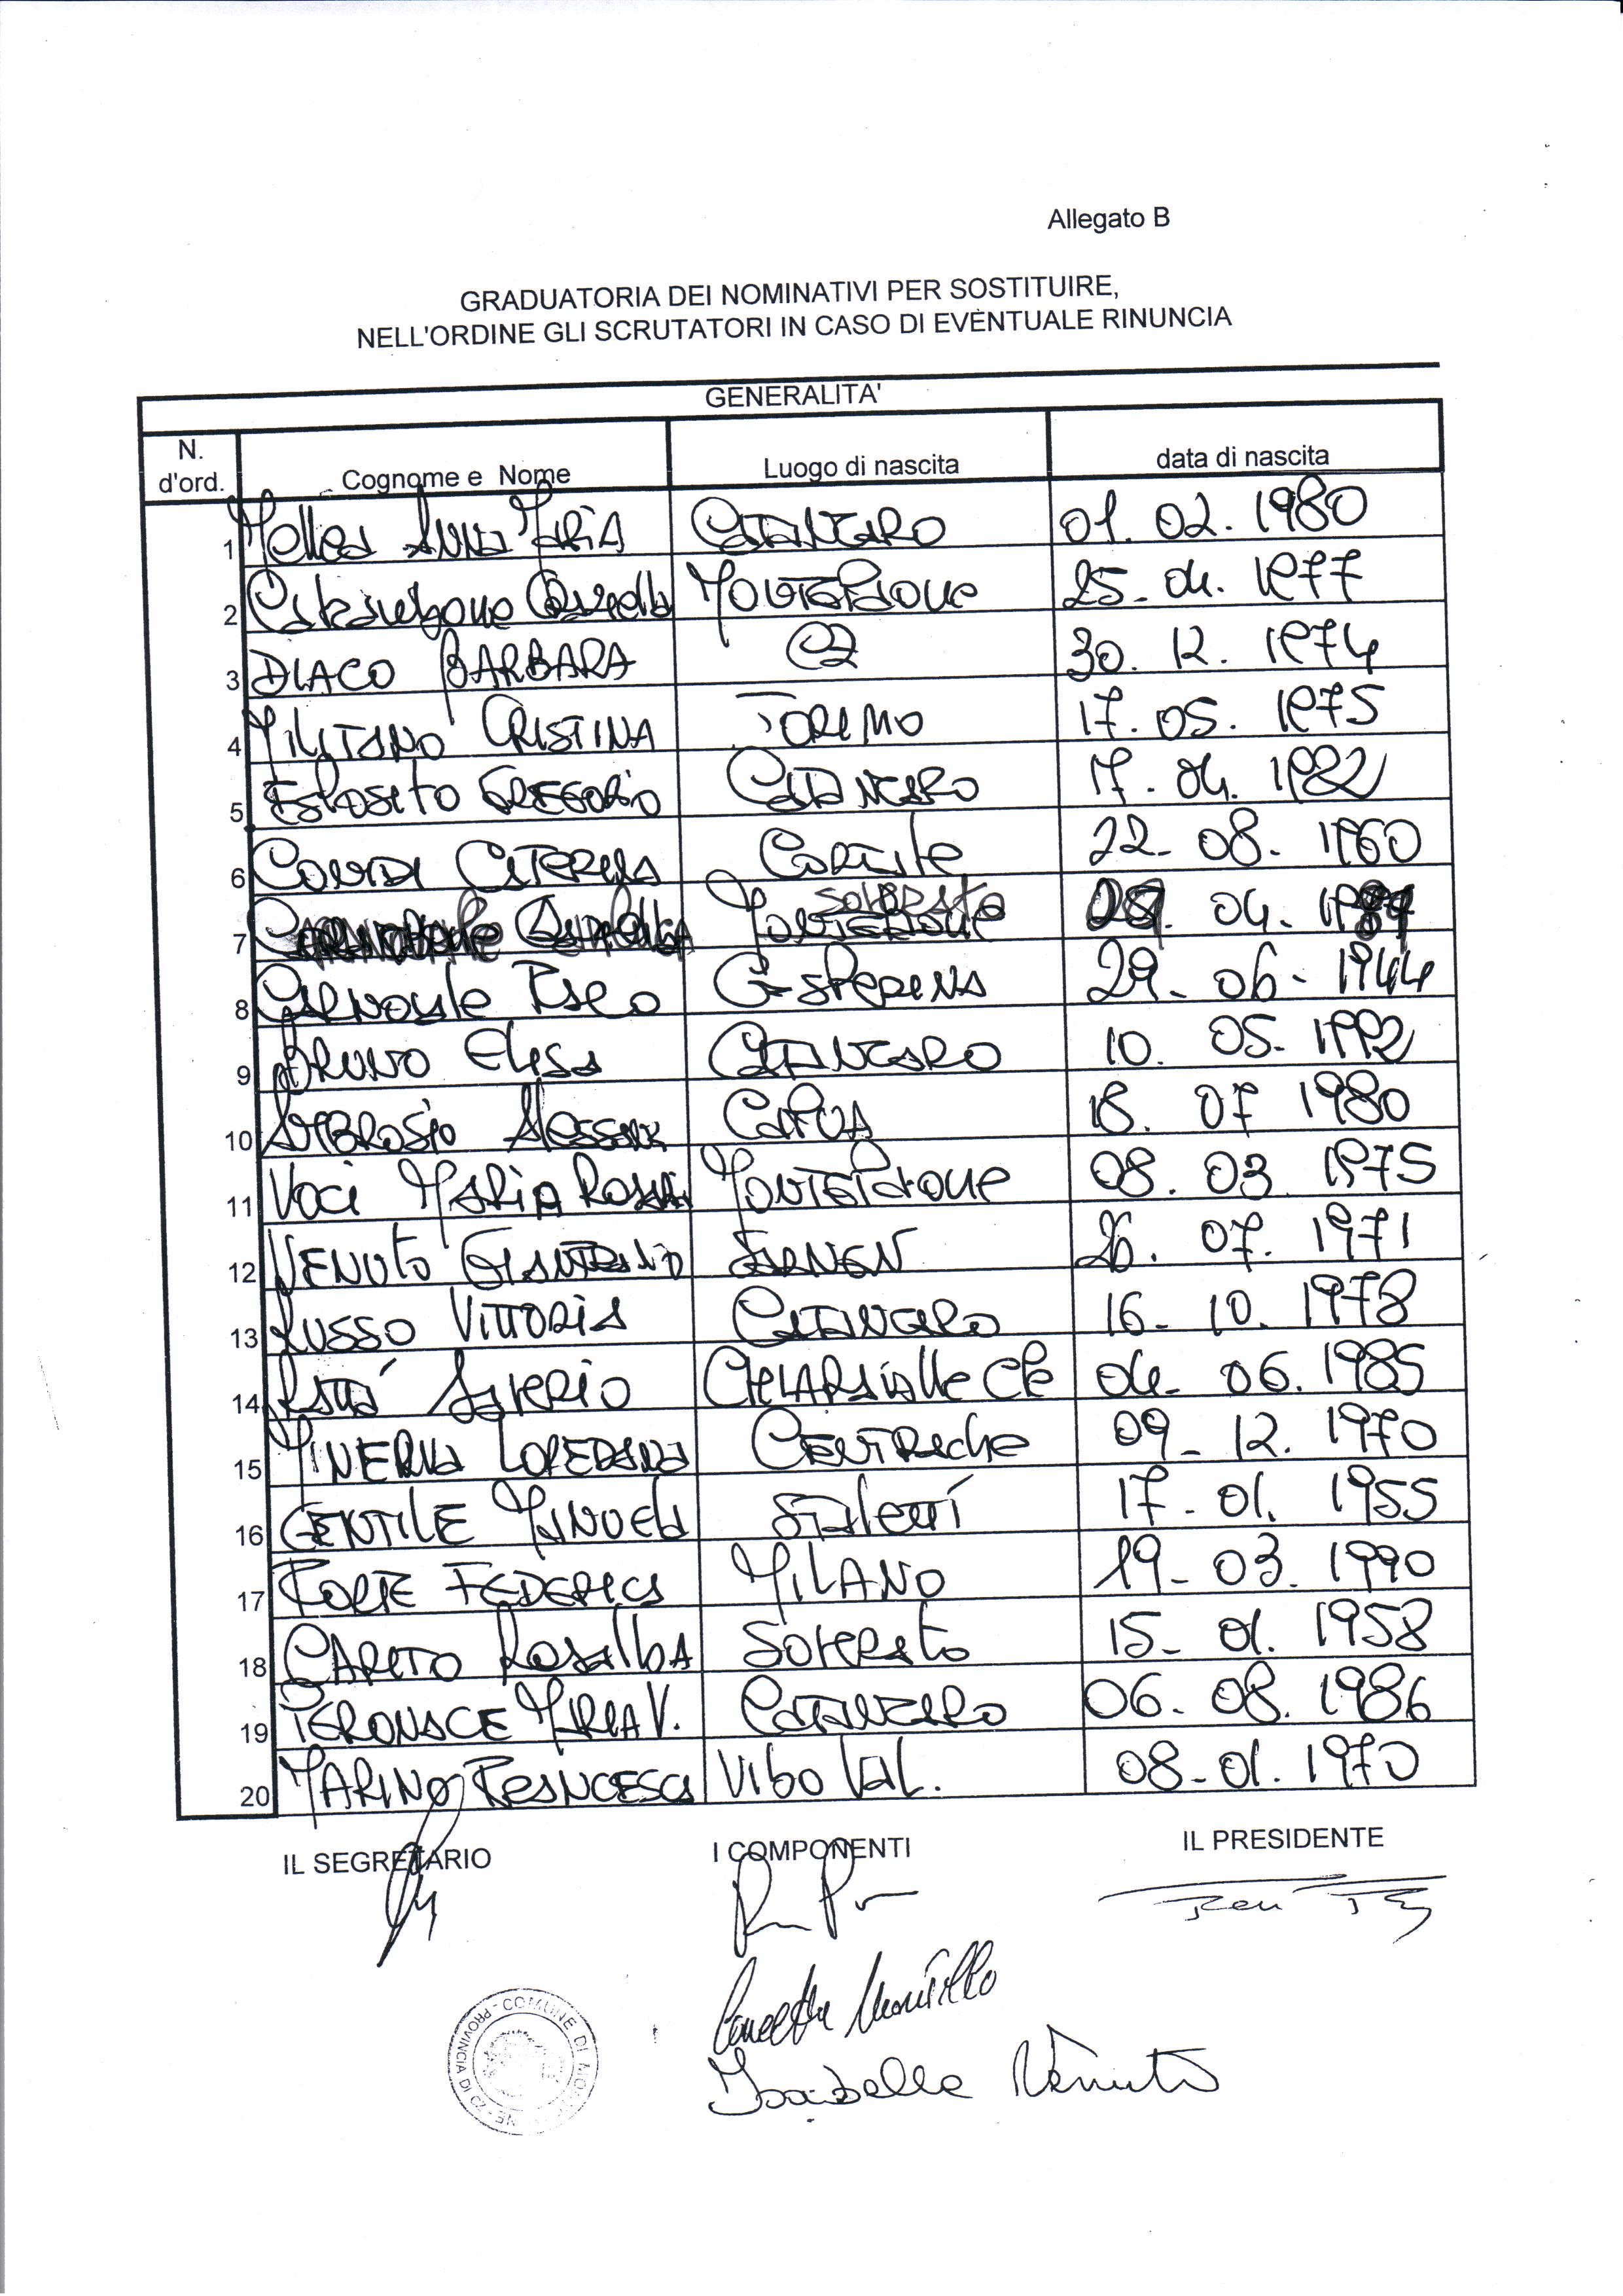 Allegato B
GRADUATORIA DEI NOMINATIVI PER SOSTITUIRE,
NELL'ORDINE GLI SCRUTATORI IN CASO DI EVENTUALE RINUNCIA
GENERALITA'
N. d'ord. Cognome e Nome Luogo di nascita data di nascita
1 Mellea Anna Maria CATANZARO 01. 02. 1980
2 MONTEPAONE 25- 04. 1977
3 DIACO BARBARA CZ 30. 12. 1974
4 MILITANO CRISTINA TORINO 17. 05. 1975
5 ESPOSITO GREGORIO CATANZARO 17. 04. 1982
6 CATERINA CORTALE 22- 08. 1960
7 SOVERATO 04. 19
8 CARNOVALE GASPERINA 29- 06- 1944
9 BRUNO ELISA CATANZARO 10. 05. 1992
10 AMBROSIO CAPUA 18. 07 1980
11 VOCI MARIA ROSARIA MONTEPAONE 08. 03 1975
12 VENUTO SARNEN 26. 07. 1971
13 RUSSO VITTORIA CATANZARO 16- 10. 1978
14 SAVERIO CHIARAVALLE CE 04- 06. 1985
15 MINERVA LOREDANA CENTRACHE 09- 12. 1970
16 GENTILE MANUELA STALETTÍ 17- 01. 1955
17 FORTE FEDERICA MILANO 19- 03. 1990
18 CARITO ROSALBA SOVERATO 15- 01. 1958
19 PERONACE MARIA V. CATANZARO 06- 08. 1986
20 MARINO FRANCESCA VIBO VAL. 08-01. 1970
IL SEGRETARIO I COMPONENTI IL PRESIDENTE
Isabella Venuto
COMUNE DI
PROVINCIA DI CZ